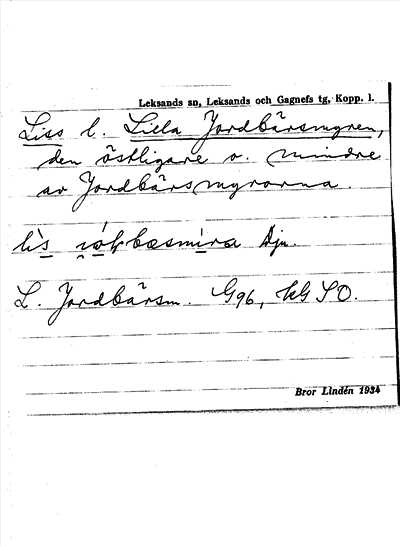 Leksands sn, Leksands och Gagnefs tg, Kopp. l.
Liss l. Lilla Jordbärsmyren,
den östligare o. mindre
av Jordbärsmyrarna.
Dju.
L. Jordbärsm. G96, kG SO.
Bror Lindén 1934